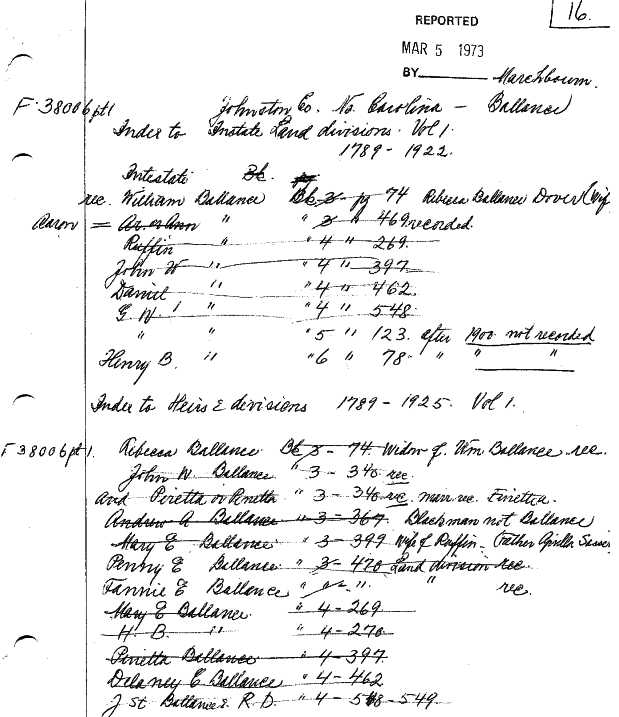 16.
REPORTED
MAR 5 1973
BY Marchbourn.
F. 38006 pt 1 Johnston Co. No. Carolina - Ballance
Index to Instate Land divisions. Vol 1.
1789 - 1922.
Intestate Bk. pg
rec. William Ballance Bk 3 - pg 74 Rebecca Ballance Dover (wif
Aaron = Ar or Ann " " 3 " 469 recorded.
Ruffin " " 4 " 269.
John W " " 4 " 397
Daniel " " 4 " 462
G. W " " 4 " 548
" " " 5 " 123. after 1900 not recorded
Henry B. " " 6 " 78 " " "
Index to Heirs & devisions 1789 - 1925. Vol 1.
F 38006 pt 1. Rebecca Ballance Bk 3 - 74. Widow of Wm Ballance rec.
John W Ballance " 3 - 340 rec
and Piretta or Penetta " 3 - 340 rec. marr rec. Finettea.
Andrew A Ballance " 3 - 367 Blackman not Ballance
Mary E Ballance " 3 - 399 Wife of Ruffin - Father
Penny E Ballance " 3 - 470 Land division rec
Fannie E Ballance " " " rec.
Mary E Ballance " 4 - 269
H. B. " " 4 - 270
Piretta Ballance " 4 - 397
Delaney E Ballance " 4 - 462
J St Ballance & R. D. " 4 - 548 - 549